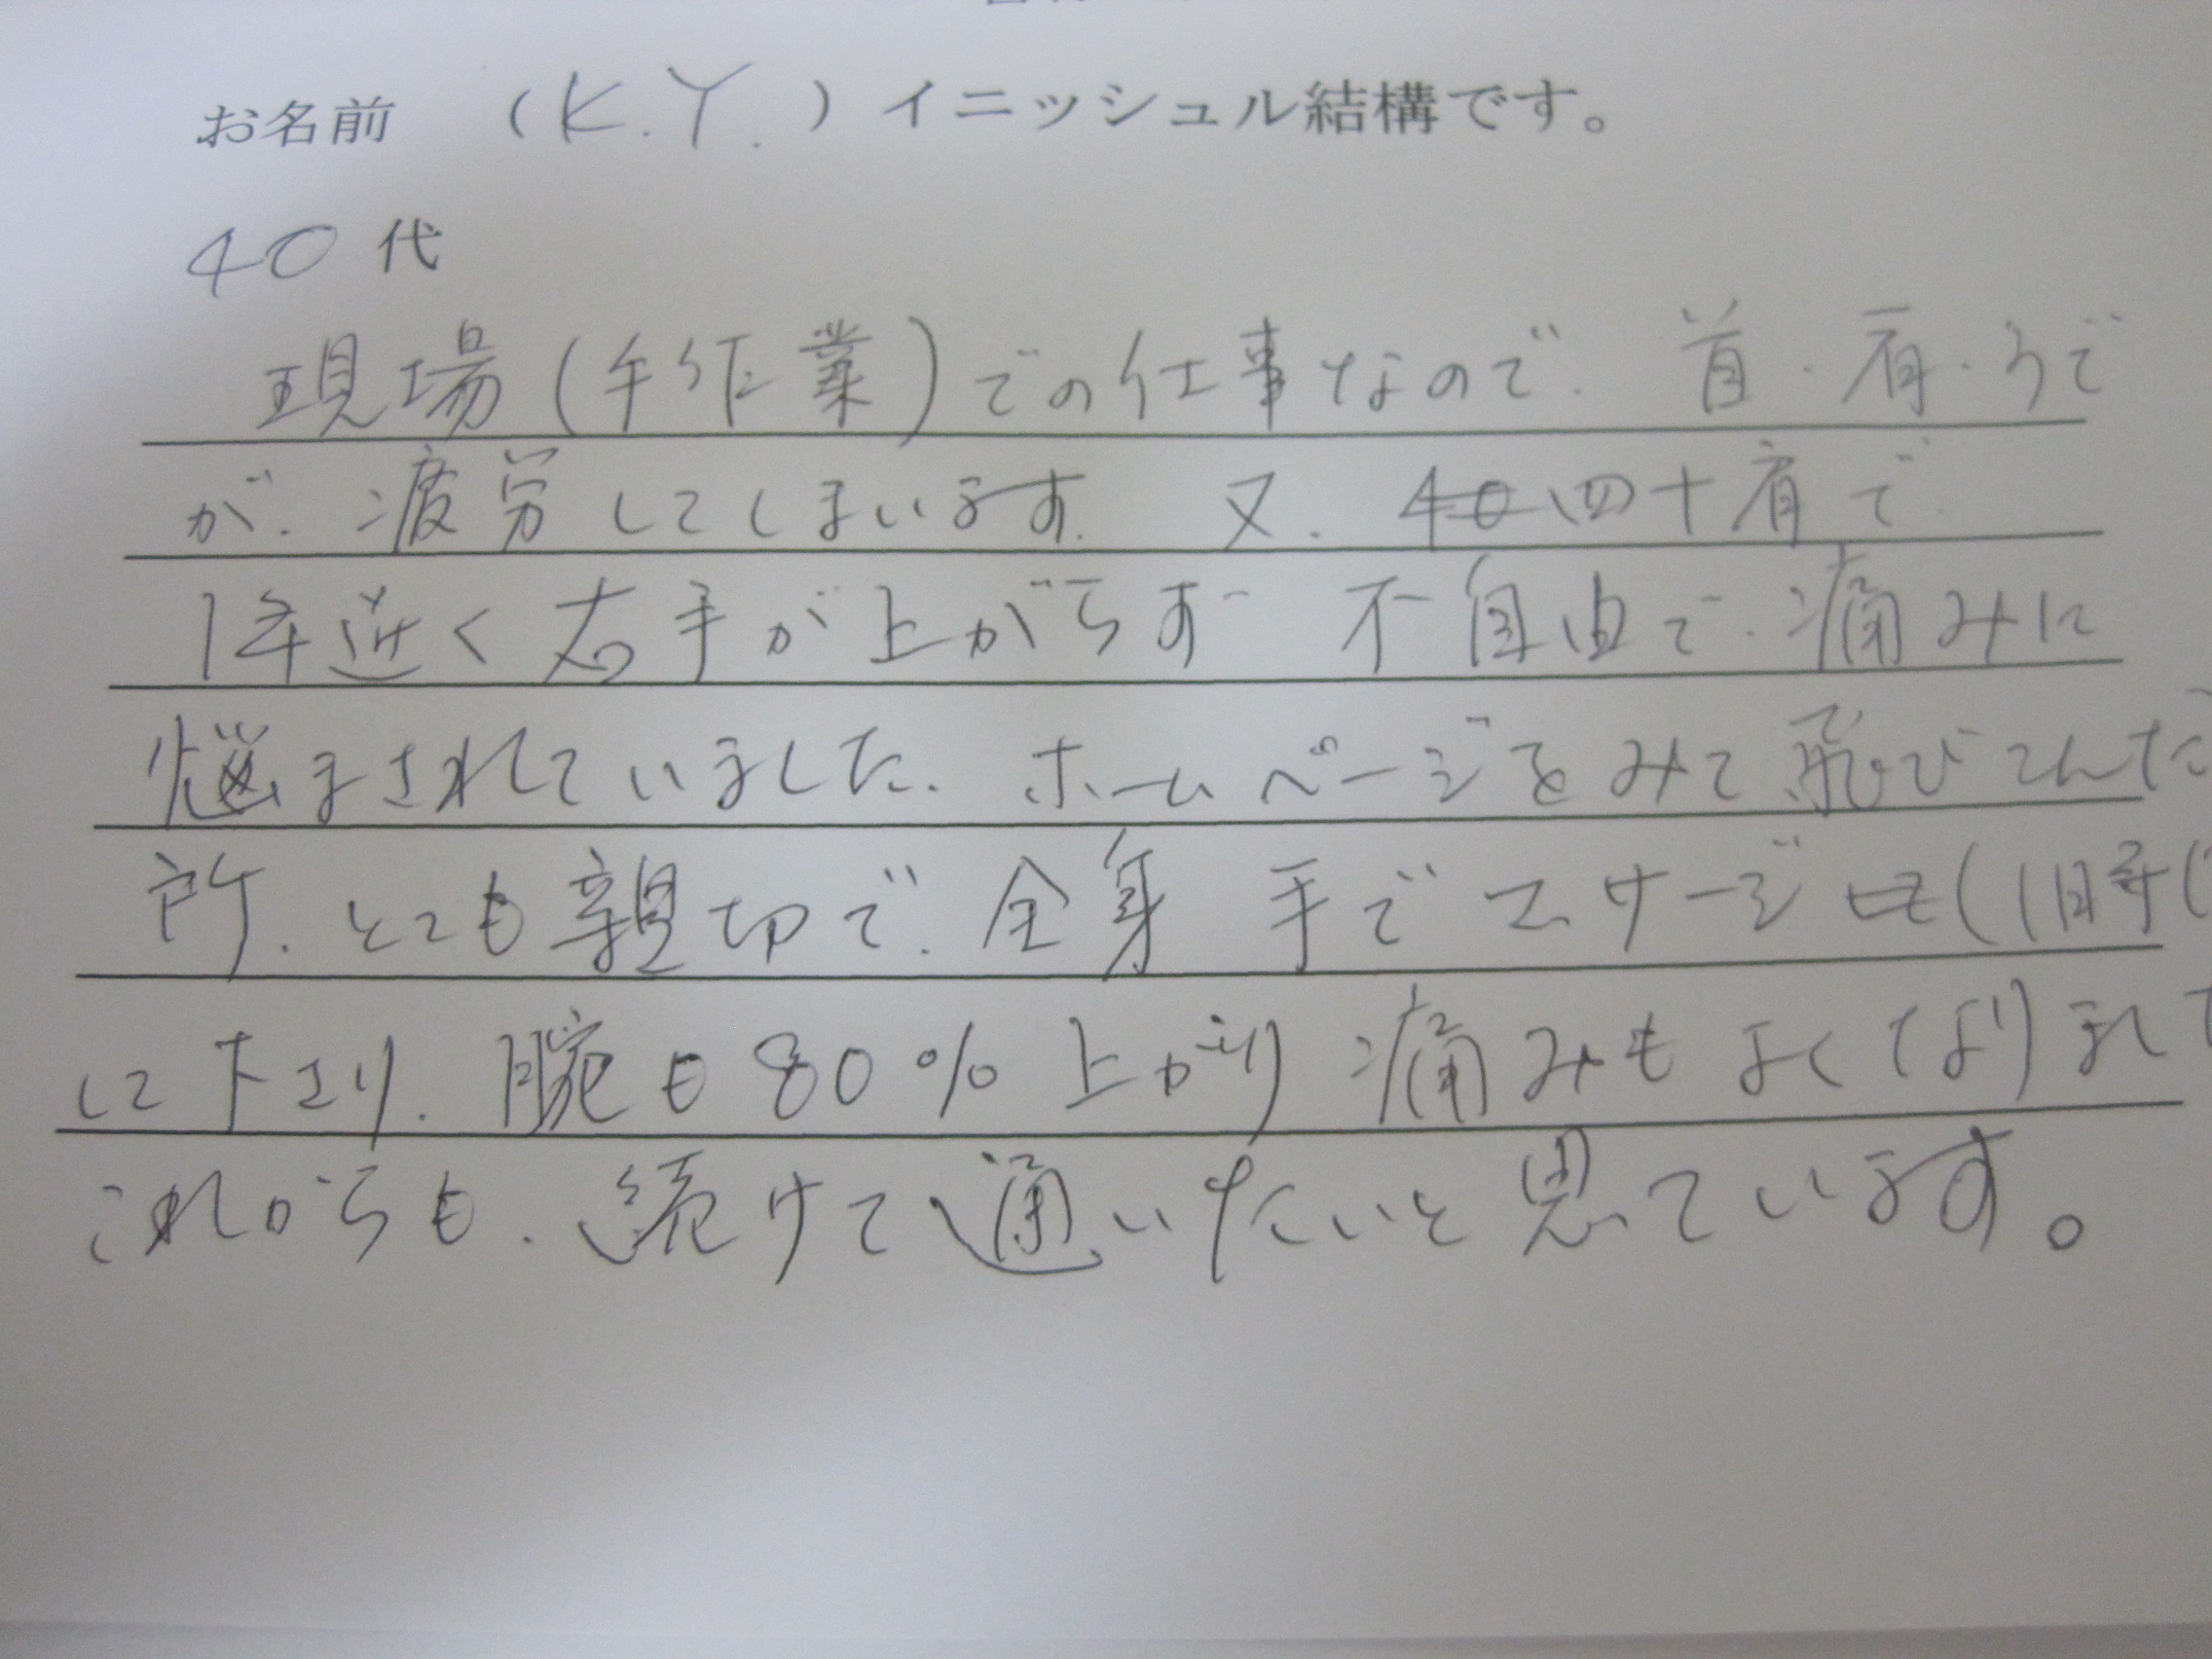 お名前 (K.Y.) イニッシュル結構です。
40 代
現場(手作業)での仕事なので、首・肩・うで
が、疲労してしまいます。又、40四十肩で
1年近く右手が上がらず 不自由で、痛みに
悩まされていました。ホームページをみて飛びこんだ
所、とても親切で、全身 手でマッサージ
に下さり、腕も80%上がり 痛みもよくなりまし
これからも、続けて通いたいと思ています。